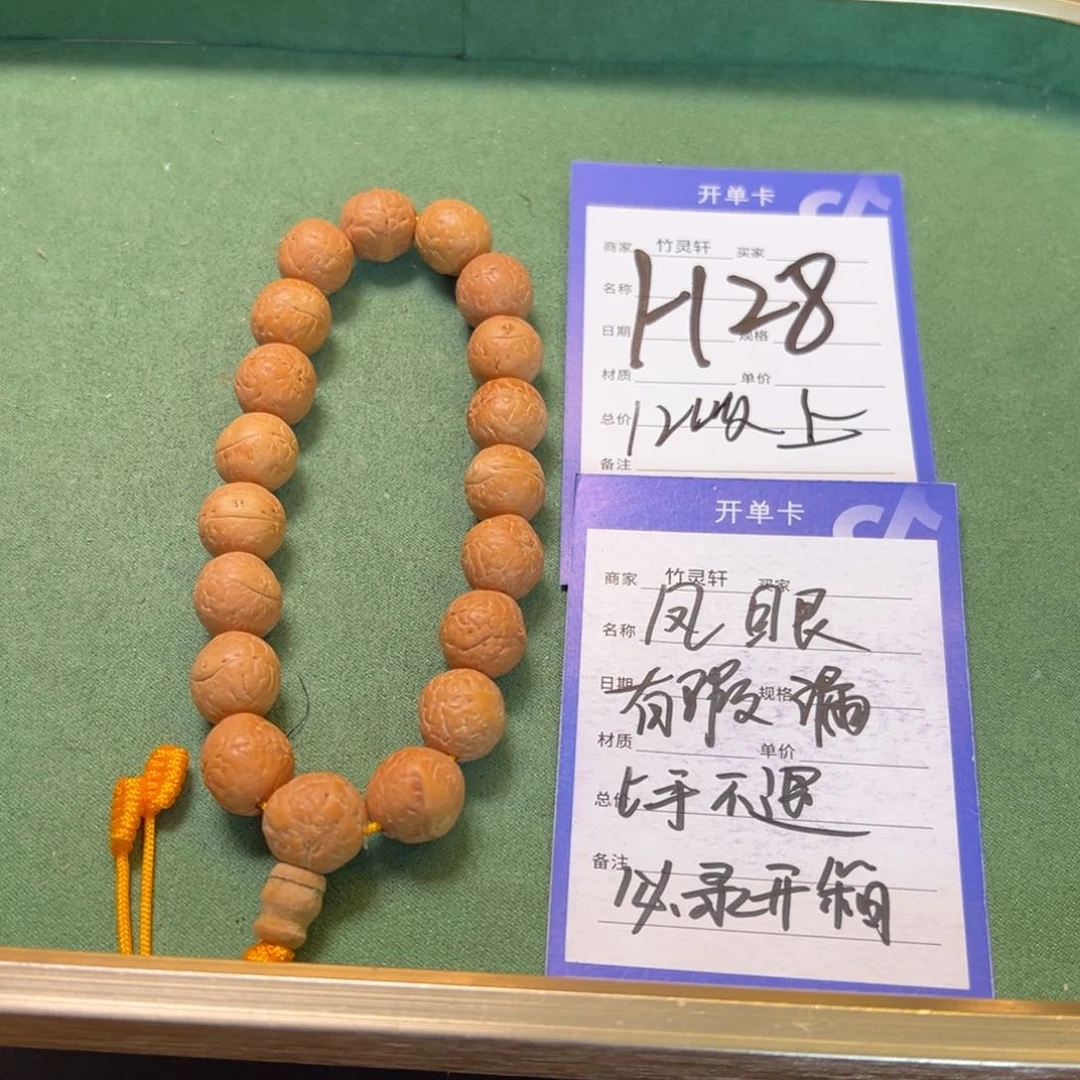 开单卡
商家 竹灵轩 买家
名称
H28
日期 规格
材质 单价
总价 12以上
备注
开单卡
商家 竹灵轩 买家
名称 凤眼
日期 规格
有瑕 漏
材质 单价
总价 上手不退
备注 必录开箱